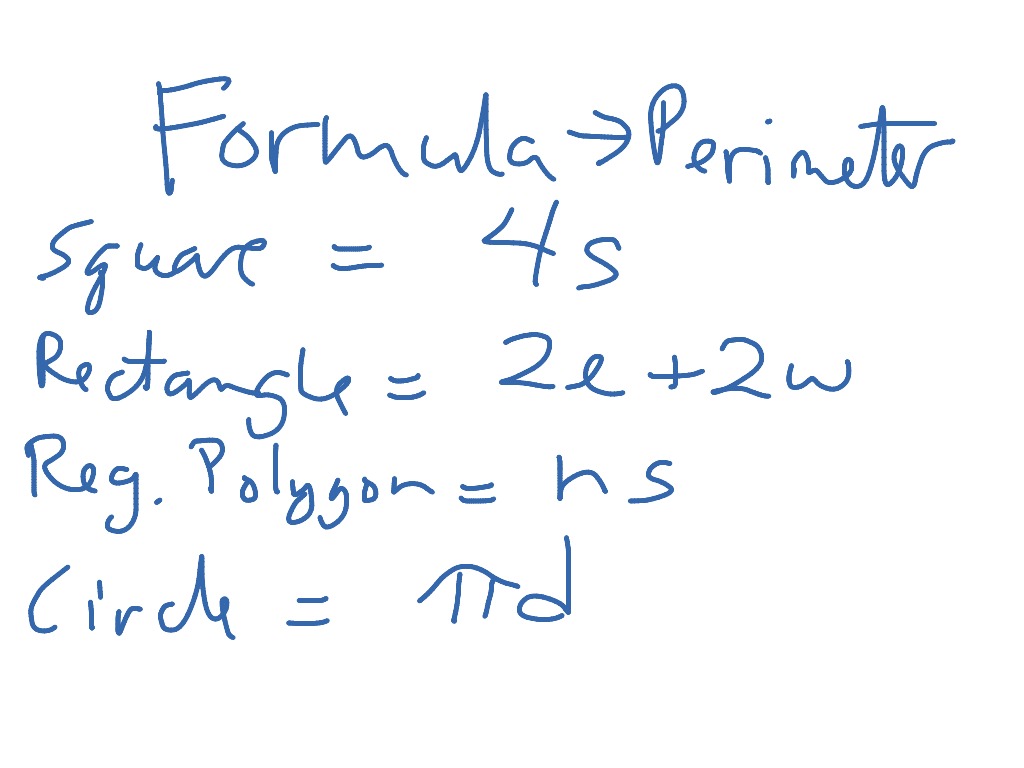 Formula → Perimeter
Square = 4s
Rectangle = 2l + 2w
Reg. Polygon = ns
Circle = πd